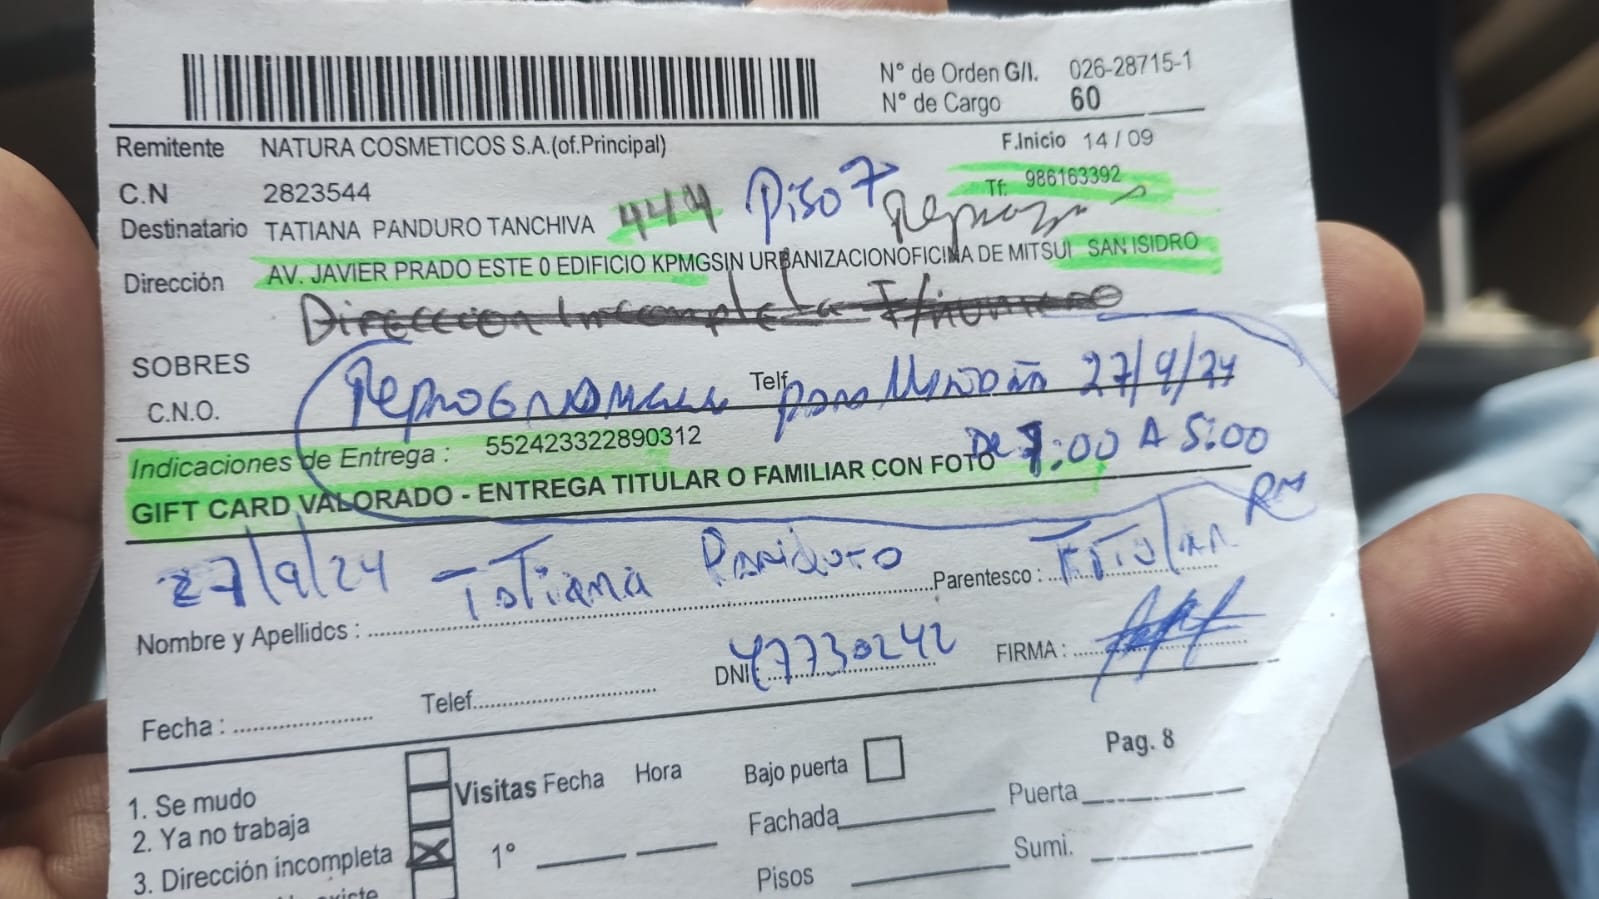 N° de Orden G/I. 026-28715-1
N° de Cargo 60
Remitente NATURA COSMETICOS S.A.(of.Principal)
F.Inicio 14 / 09
C.N 2823544
Tf: 986163392
Destinatario TATIANA PANDURO TANCHIVA 444 Piso 7
Dirección AV. JAVIER PRADO ESTE 0 EDIFICIO KPMGSIN URBANIZACIONOFICINA DE MITSUI SAN ISIDRO
Direccion Incompleta
SOBRES
Telf para 27/9/24
C.N.O.
Indicaciones de Entrega : 552423322890312
De 1:00 A 5:00
GIFT CARD VALORADO - ENTREGA TITULAR O FAMILIAR CON FOTO
27/9/24 Tatiana Panduro Titular
Nombre y Apellidos : Parentesco :
DNI 47730242 FIRMA :
Fecha : Telef.
Pag. 8
1. Se mudo
Visitas Fecha Hora Bajo puerta
2. Ya no trabaja
Fachada Puerta
3. Dirección incompleta
1° Pisos Sumi.
existe